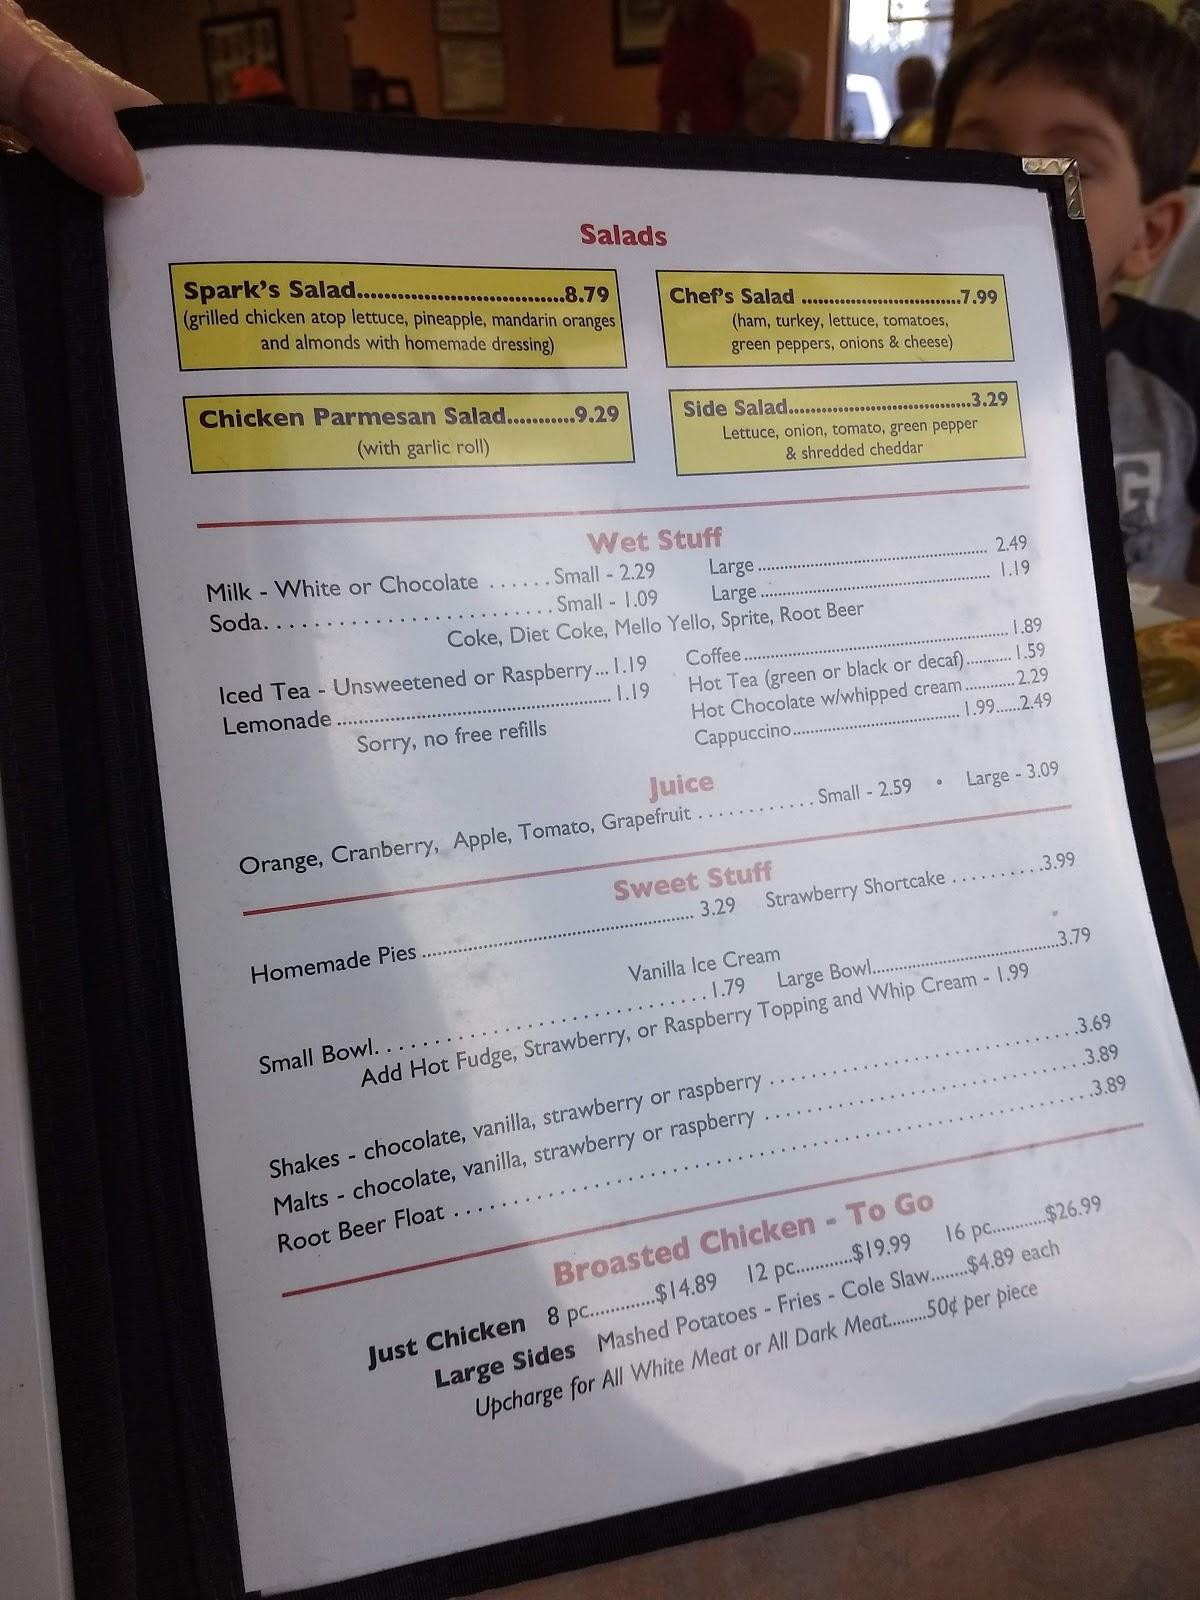 Salads
Spark's Salad..................................8.79
(grilled chicken atop lettuce, pineapple, mandarin oranges
and almonds with homemade dressing)
Chef's Salad ..............................7.99
(ham, turkey, lettuce, tomatoes,
green peppers, onions & cheese)
Chicken Parmesan Salad...........9.29
(with garlic roll)
Side Salad..................................3.29
Lettuce, onion, tomato, green pepper
& shredded cheddar
Wet Stuff
Milk - White or Chocolate ......Small - 2.29 Large .................................... 2.49
Soda............................Small - 1.09 Large .................................... 1.19
Coke, Diet Coke, Mello Yello, Sprite, Root Beer
Iced Tea - Unsweetened or Raspberry...1.19
Lemonade ............................................ 1.19
Sorry, no free refills
Coffee..........................................1.89
Hot Tea (green or black or decaf)..........1.59
Hot Chocolate w/whipped cream...........2.29
Cappuccino.............................. 1.99.....2.49
Juice
Orange, Cranberry, Apple, Tomato, Grapefruit ............Small - 2.59 • Large - 3.09
Sweet Stuff
Homemade Pies ............................................ 3.29 Strawberry Shortcake ..........3.99
Vanilla Ice Cream
Small Bowl...............................1.79 Large Bowl..............................3.79
Add Hot Fudge, Strawberry, or Raspberry Topping and Whip Cream - 1.99
Shakes - chocolate, vanilla, strawberry or raspberry ..............................3.69
Malts - chocolate, vanilla, strawberry or raspberry ..............................3.89
Root Beer Float ..........................................................3.89
Broasted Chicken - To Go
Just Chicken 8 pc.............$14.89 12 pc............$19.99 16 pc...........$26.99
Large Sides Mashed Potatoes - Fries - Cole Slaw........$4.89 each
Upcharge for All White Meat or All Dark Meat........50¢ per piece
G